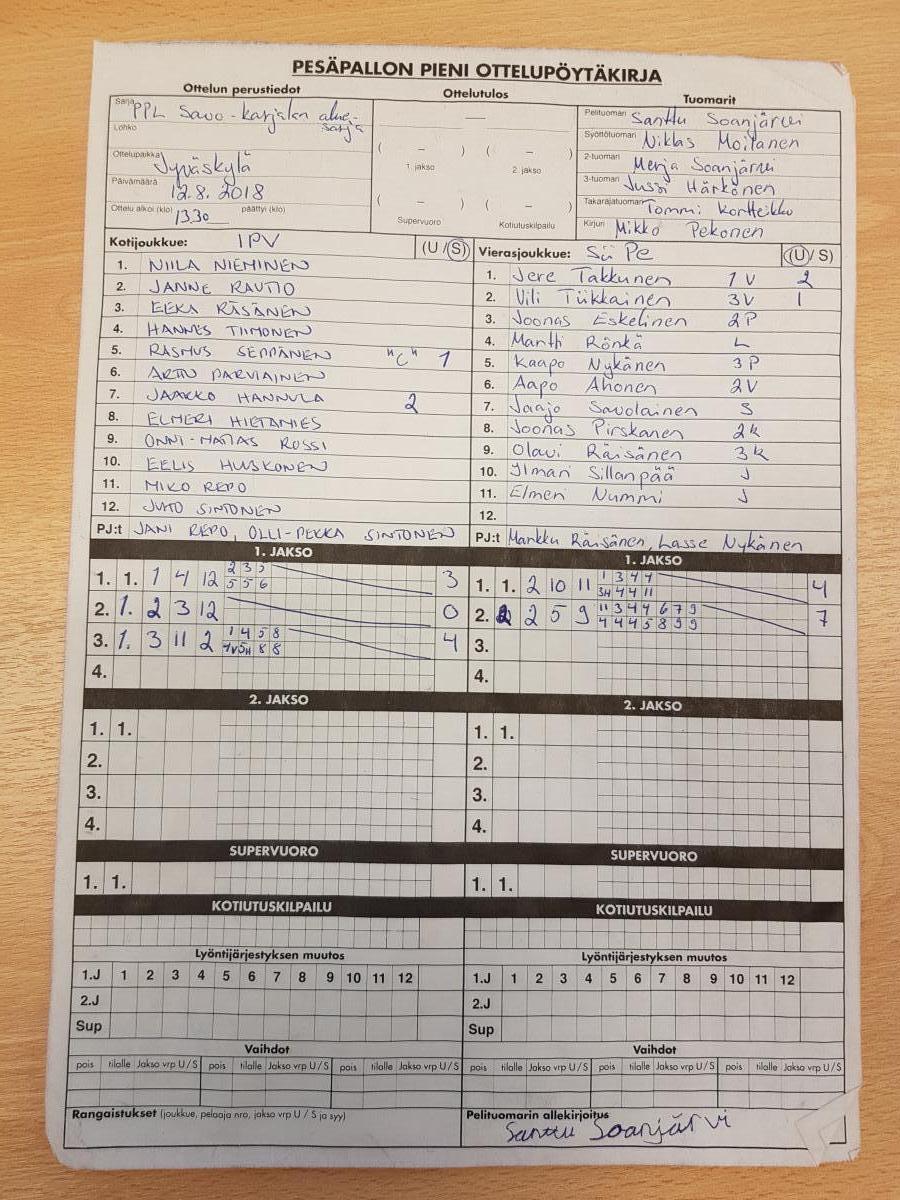 PESÄPALLON PIENI OTTELUPÖYTÄKIRJA
Ottelun perustiedot
Sarja PPL Savo-karjalan alue-
sarja
Lohko
Ottelupaikka Jyväskylä
Päivämäärä 12.8.2018
Ottelu alkoi (klo) 1330 päättyi (klo)
Ottelutulos
—
( – ) ( – )
1. jakso 2. jakso
( – ) ( – )
Supervuoro Kotiutuskilpailu
Tuomarit
Pelituomari Santtu Soanjärvi
Syöttötuomari Niklas Moilanen
2-tuomari Merja Soanjärvi
3-tuomari Jussi Härkönen
Takarajatuomari Tommi Kortteikko
Kirjuri Mikko Pekonen
Kotijoukkue: IPV (U / S)
1. NIILA NIEMINEN
2. JANNE RAUTIO
3. EEKA RÄSÄNEN
4. HANNES TIIMONEN
5. RASMUS SEPPÄNEN "C" 1
6. ARTTU PARVIAINEN
7. JAAKKO HANNULA 2
8. ELMERI HIETANIES
9. ONNI-MATIAS ROSSI
10. EELIS HUSKONEN
11. MIKO REPO
12. JUHO SINTONEN
PJ:t JANI REPO, OLLI-PEKKA SINTONEN
Vierasjoukkue: Sii Pe (U / S)
1. Jere Takkunen 1V 2
2. Vili Tiikkainen 3V 1
3. Joonas Eskelinen 2P
4. Martti Rönkä L
5. Kaapo Nykänen 3P
6. Aapo Ahonen 2V
7. Jaajo Savolainen S
8. Joonas Pirskanen 2k
9. Olavi Räisänen 3k
10. Ilmari Sillanpää J
11. Elmeri Nummi J
12.
PJ:t Markku Räisänen, Lasse Nykänen
1. JAKSO
1. 1. 1 4 12 2 3 5 3
5 5 6
2. 1. 2 3 12 0
3. 1. 3 11 2 1 4 5 8 4
1V 5H 8 8
4.
1. JAKSO
1. 1. 2 10 11 1 3 4 4 4
3H 4 4 11
2. 2 2 5 9 11 3 4 4 6 7 9 7
4 4 4 5 8 9 9
3.
4.
2. JAKSO
1. 1.
2.
3.
4.
2. JAKSO
1. 1.
2.
3.
4.
SUPERVUORO
1. 1.
SUPERVUORO
1. 1.
KOTIUTUSKILPAILU
KOTIUTUSKILPAILU
Lyöntijärjestyksen muutos
1.J 1 2 3 4 5 6 7 8 9 10 11 12
2.J
Sup
Lyöntijärjestyksen muutos
1.J 1 2 3 4 5 6 7 8 9 10 11 12
2.J
Sup
Vaihdot
pois tilalle Jakso vrp U / S pois tilalle Jakso vrp U / S pois tilalle Jakso vrp U / S
Vaihdot
pois tilalle Jakso vrp U / S pois tilalle Jakso vrp U / S pois tilalle Jakso vrp U / S
Rangaistukset (joukkue, pelaaja nro, jakso vrp U / S ja syy)
Pelituomarin allekirjoitus
Santtu Soanjärvi